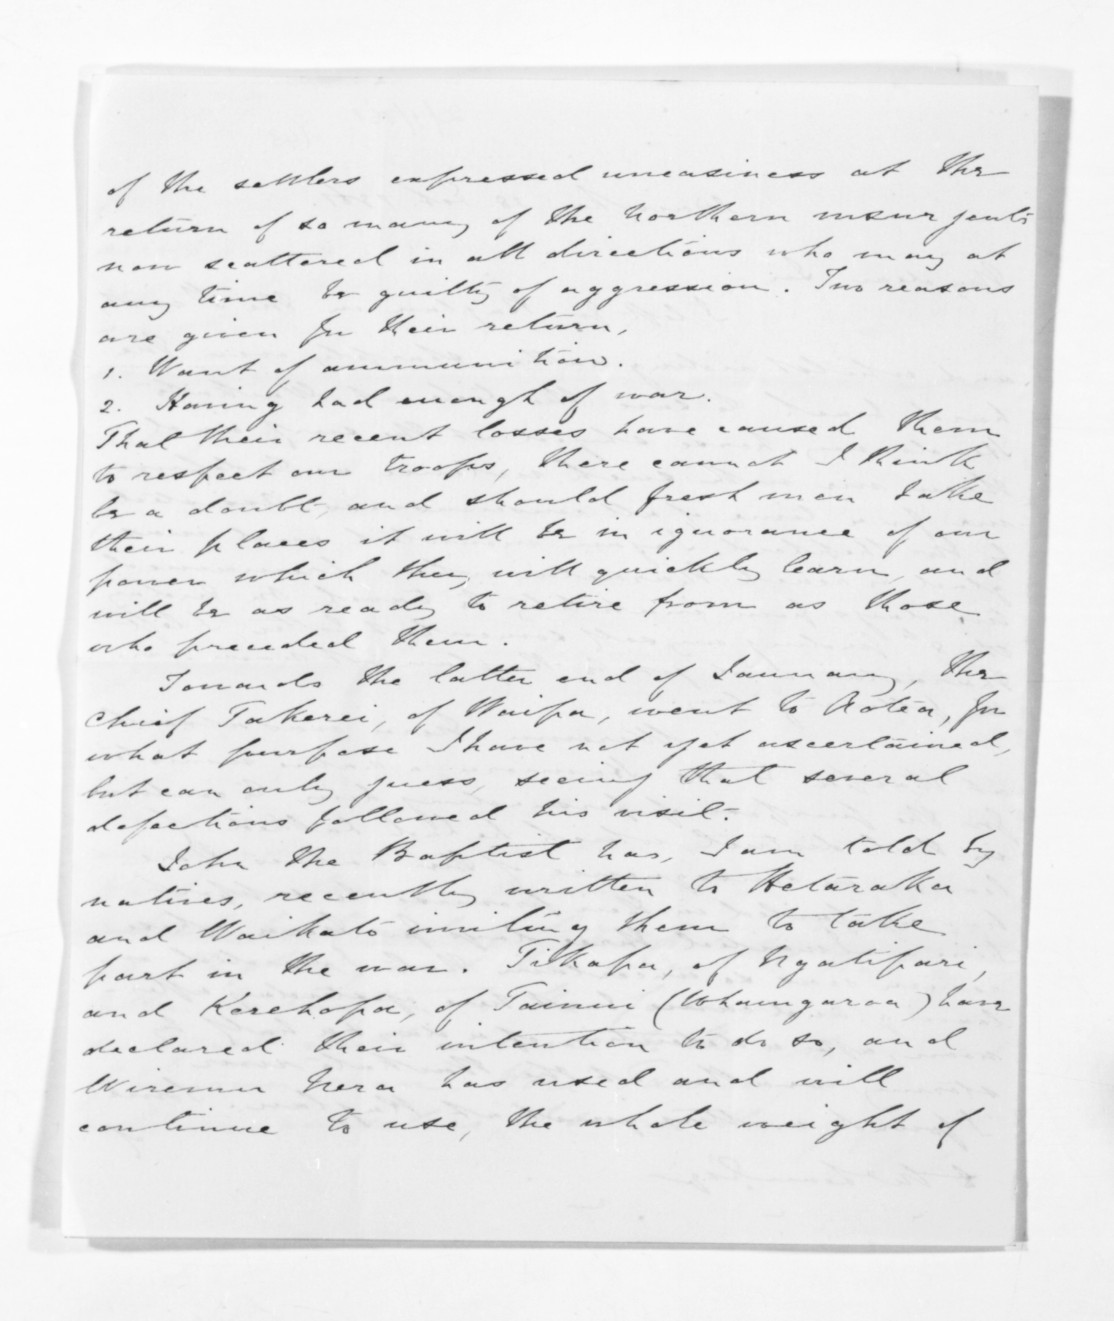 of the settlers expressed uneasiness at the
return of so many of the Northern insurgents
now scattered in all directions who may at
any time be guilty of aggression. Two reasons
are given for their return,
1. Want of ammunition.
2. Having had enough of war.
That their recent losses have caused them
to respect our troops, there cannot I think
be a doubt, and should fresh men take
their places it will be in ignorance of our
power which they will quickly learn, and
will be as ready to retire from as those
who preceded them.
Towards the latter end of January, the
Chief Takerei, of Waipa, went to Aotea, for
what purpose I have not yet ascertained,
but can only guess, seeing that several
defections followed his visit.
John the Baptist has, I am told by
natives, recently written to Hetaraka
and Waikato inviting them to take
part in the war. Tikapa, of Ngatipari,
and Kerehopa, of Tainui (Whaingaroa) have
declared their intention to do so, and
Wiremu Nera has used and will
continue to use, the whole weight of